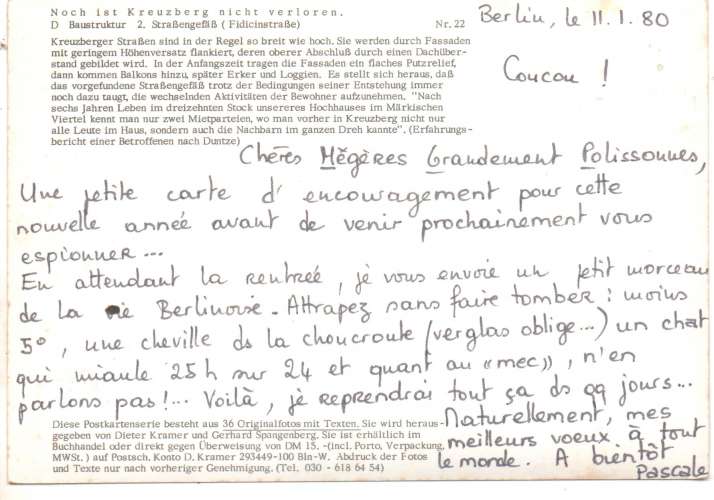 Noch ist Kreuzberg nicht verloren.
D Baustruktur 2. Straßengefäß (Fidicinstraße) Nr. 22
Kreuzberger Straßen sind in der Regel so breit wie hoch. Sie werden durch Fassaden
mit geringem Höhenversatz flankiert, deren oberer Abschluß durch einen Dachüber-
stand gebildet wird. In der Anfangszeit tragen die Fassaden ein flaches Putzrelief,
dann kommen Balkons hinzu, später Erker und Loggien. Es stellt sich heraus, daß
das vorgefundene Straßengefäß trotz der Bedingungen seiner Entstehung immer
noch dazu taugt, die wechselnden Aktivitäten der Bewohner aufzunehmen. "Nach
sechs Jahren Leben im dreizehnten Stock unsereres Hochhauses im Märkischen
Viertel kennt man nur zwei Mietparteien, wo man vorher in Kreuzberg nicht nur
alle Leute im Haus, sondern auch die Nachbarn im ganzen Dreh kannte". (Erfahrungs-
bericht einer Betroffenen nach Duntze)
Berlin, le 11.1.80
Coucou !
Chères Mégères Grandement Polissonnes,
Une petite carte d'encouragement pour cette
nouvelle année avant de venir prochainement vous
espionner...
En attendant la rentrée, je vous envoie un petit morceau
de la vie Berlinoise. Attrapez sans faire tomber : moins
5°, une cheville ds la choucroute (verglas oblige...) un chat
qui miaule 25 h sur 24 et quant au «mec», n'en
parlons pas !... Voilà, je reprendrai tout ça ds qq jours...
Naturellement, mes
meilleurs voeux à tout
le monde. A bientôt
Pascale
Diese Postkartenserie besteht aus 36 Originalfotos mit Texten. Sie wird heraus-
gegeben von Dieter Kramer und Gerhard Spangenberg. Sie ist erhältlich im
Buchhandel oder direkt gegen Überweisung von DM 15.-(incl. Porto, Verpackung,
MWSt.) auf Postsch. Konto D. Kramer 293449-100 Bln-W. Abdruck der Fotos
und Texte nur nach vorheriger Genehmigung. (Tel. 030 - 618 64 54)